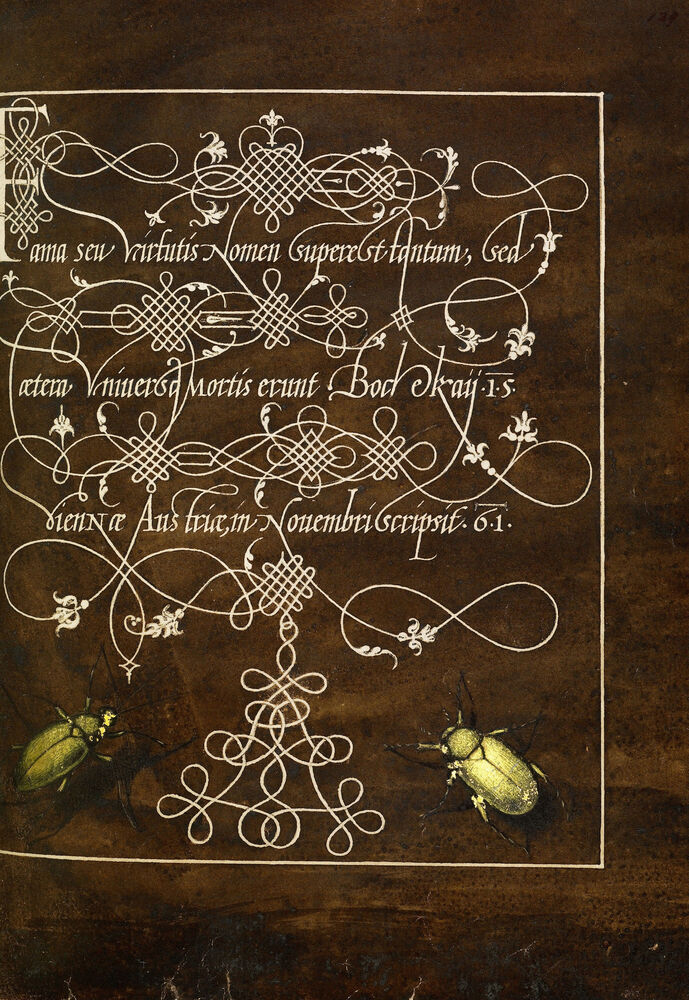 129
Fama seu virtutis Nomen superest tantum, sed
ætera Vniuersa Mortis erunt · Boc skaij · 15 ·
viennæ Austriæ, in Nouembri scripsit · 61 ·